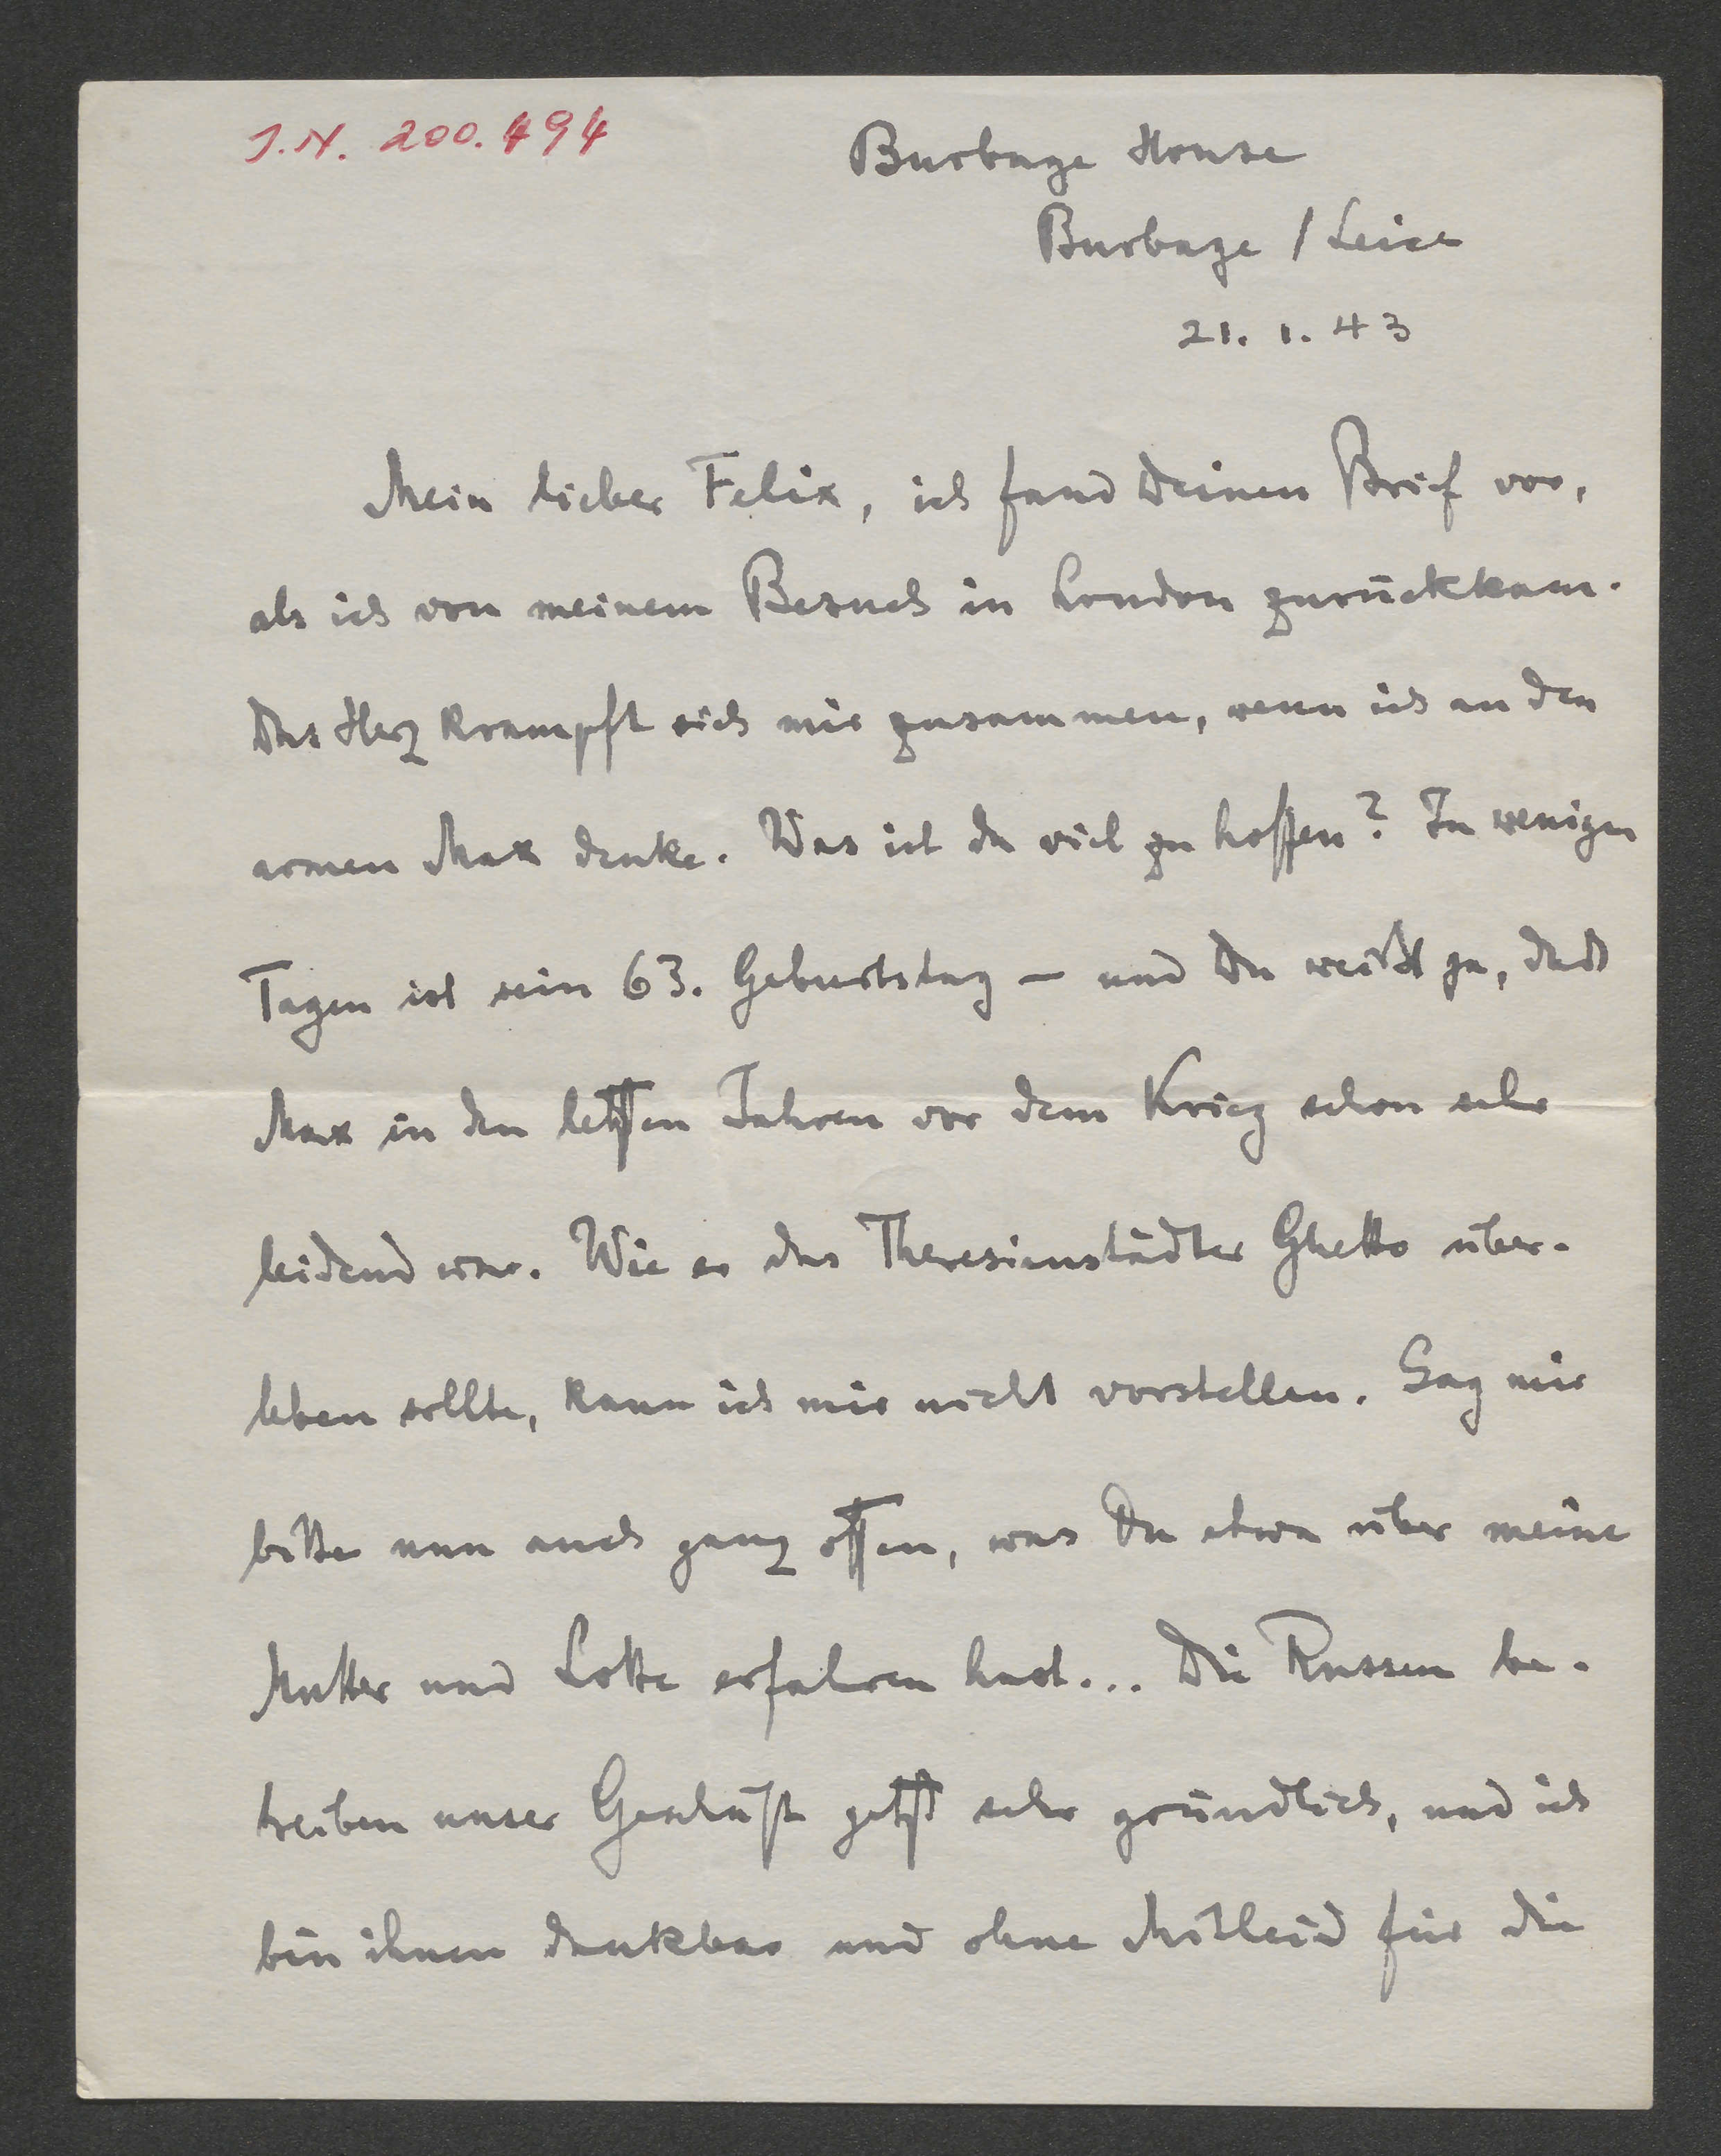 J.N. 200.494
Burbage House
Burbage / Leice
21. 1. 43
Mein lieber Felix, ich fand Deinen Brief vor,
als ich von meinem Besuch in London zurückkam.
Das Herz krampft sich mir zusammen, wenn ich an den
armen Max denke. Was ist da viel zu hoffen? In wenigen
Tagen ist sein 63. Geburtstag – und Du weißt ja, daß
Max in den letzten Jahren vor dem Krieg schon sehr
leidend war. Wie er das Theresienstädter Ghetto über-
leben sollte, kann ich mir nicht vorstellen. Sag mir
bitte nun auch ganz offen, was Du etwa über meine
Mutter und Lotte erfahren hast... Die Russen be-
treiben unser Geschäft jetzt sehr gründlich, und ich
bin ihnen dankbar und ohne Mitleid für die